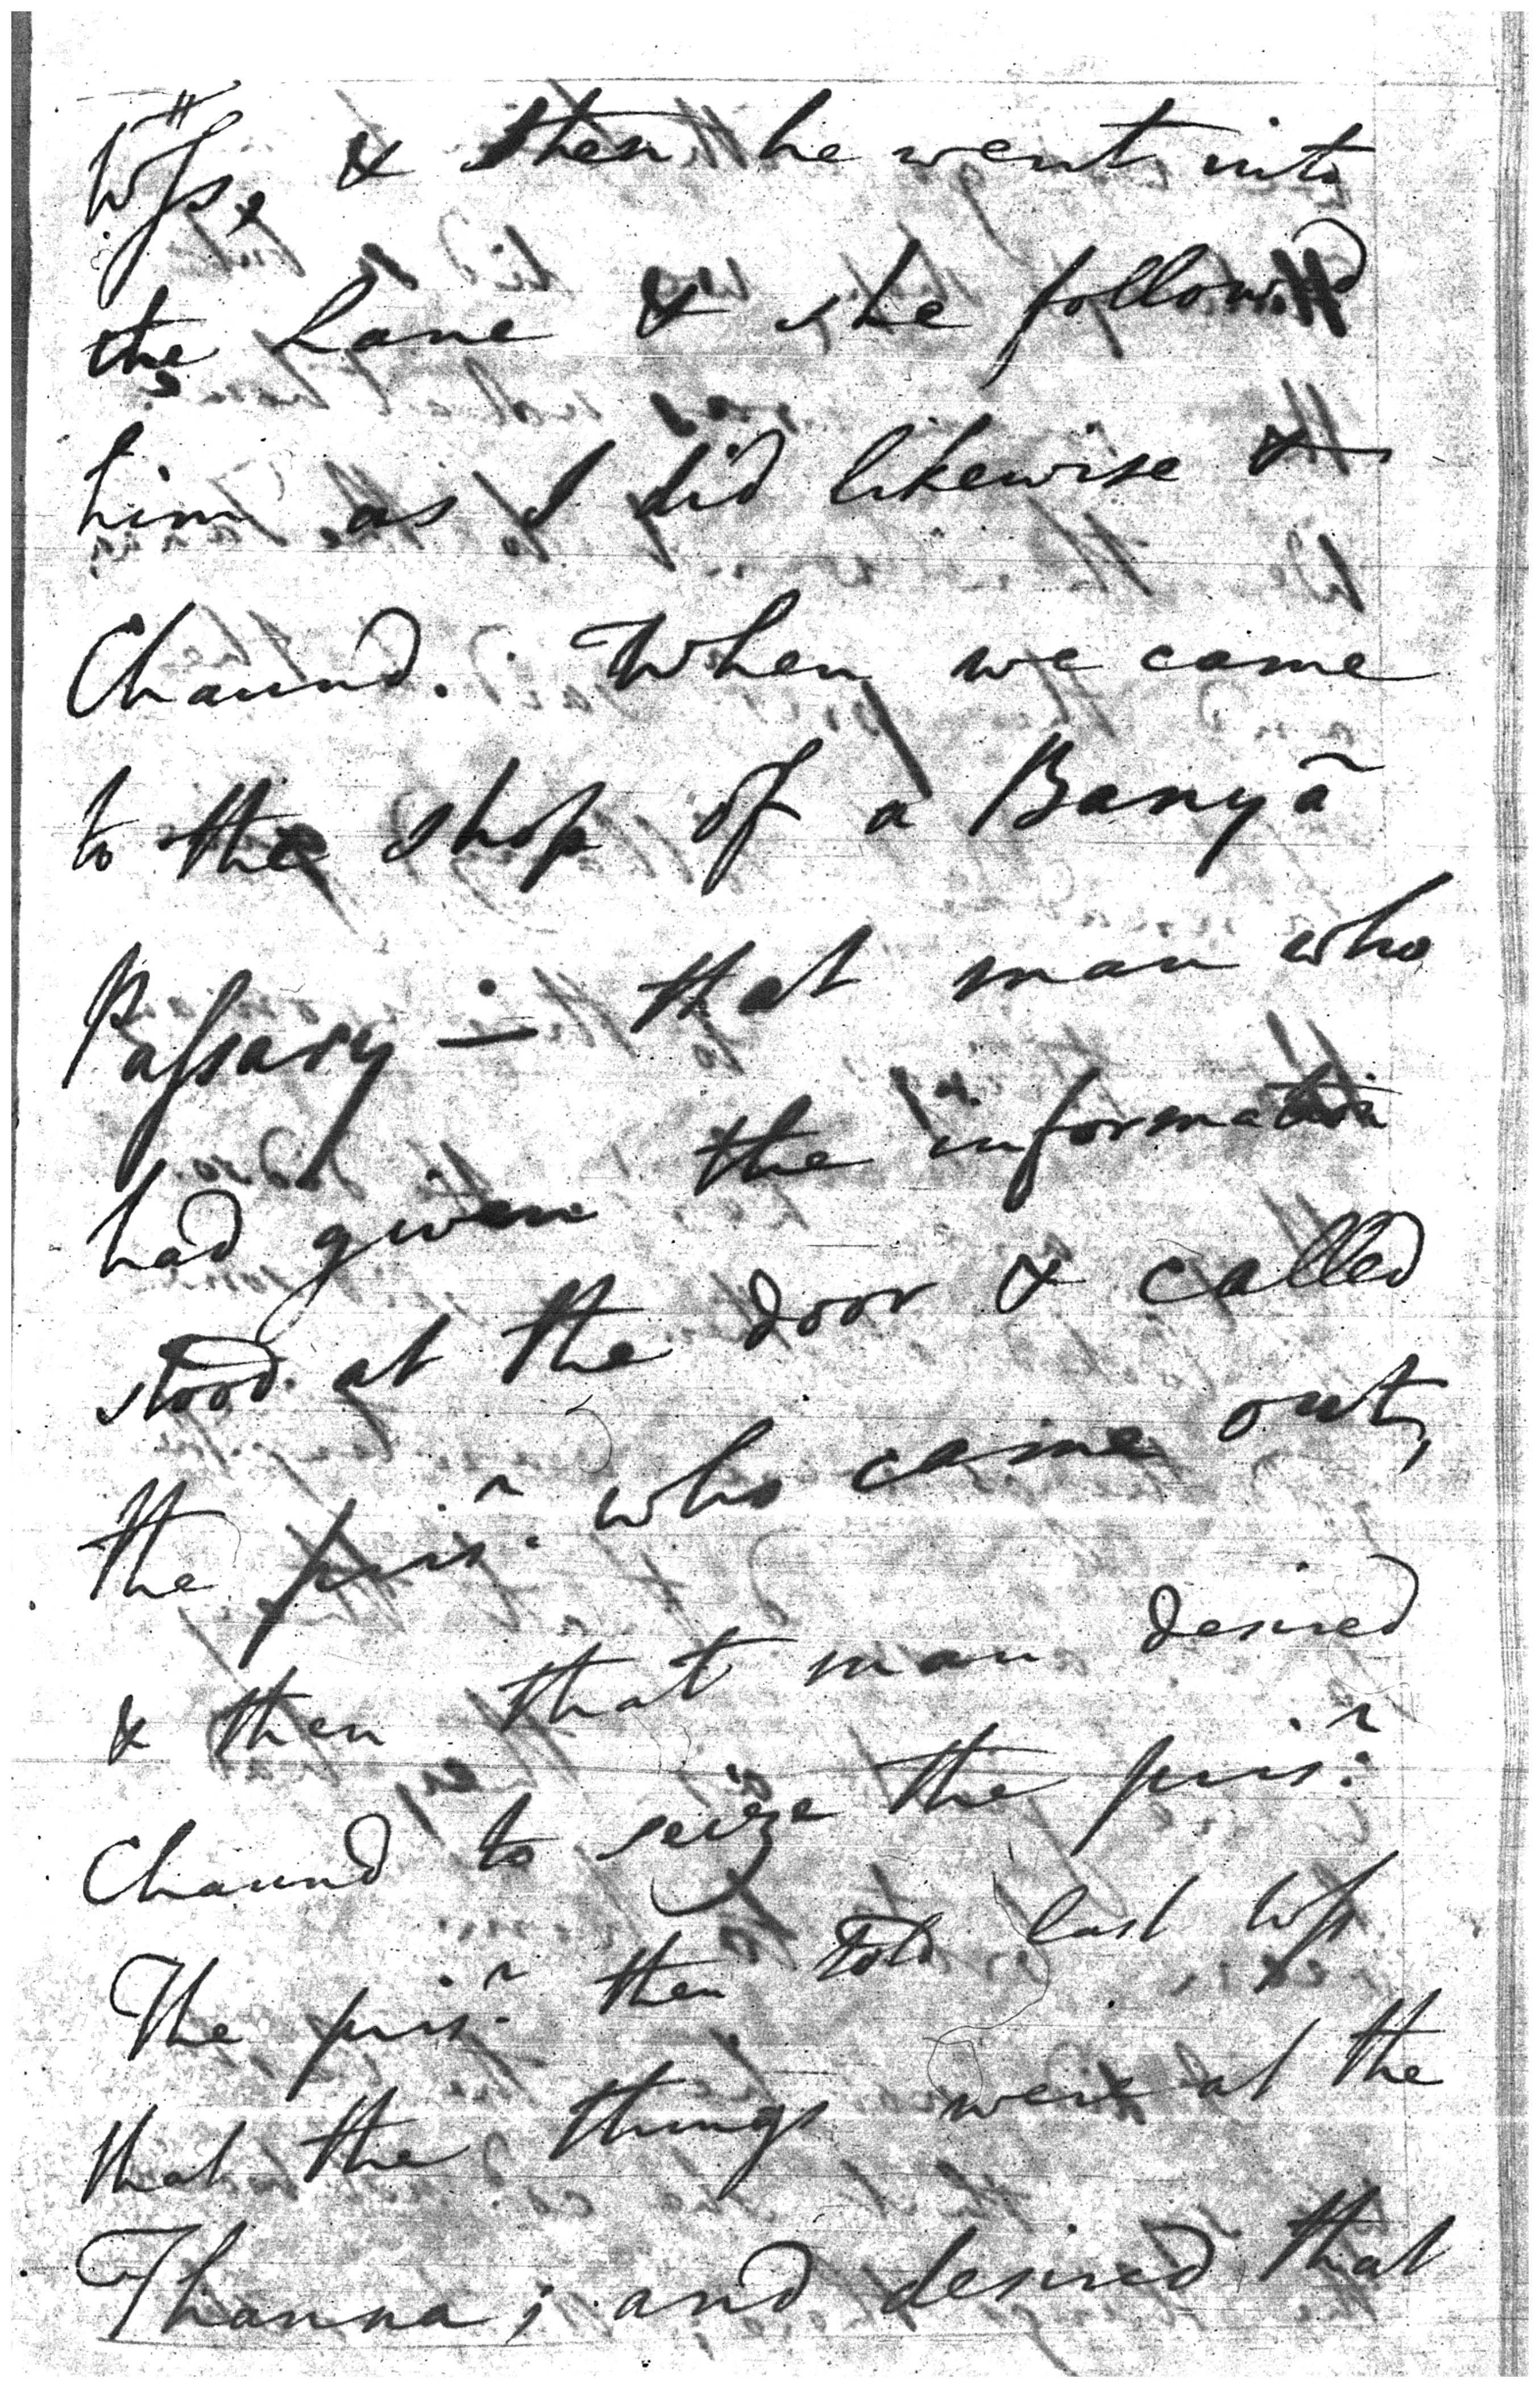 Wss, & then he went into
the Lane & she followed
him as I did likewise &
Chaund. When we came
to the shop of a Banyā
Passary — that man who
had given the information
stood at the door & called
the prisr. who came out,
& then that man desired
Chaund to seize the prisr.
The prisr. then told last Wss
that the things were at the
Thanna; and desired that